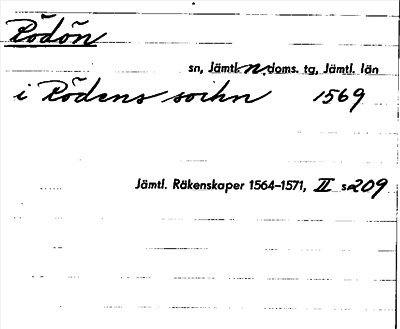 Rödön
sn, Jämtl. n. doms. tg, Jämtl. län
i Rödens sochn 1569
Jämtl. Räkenskaper 1564-1571, II s. 209